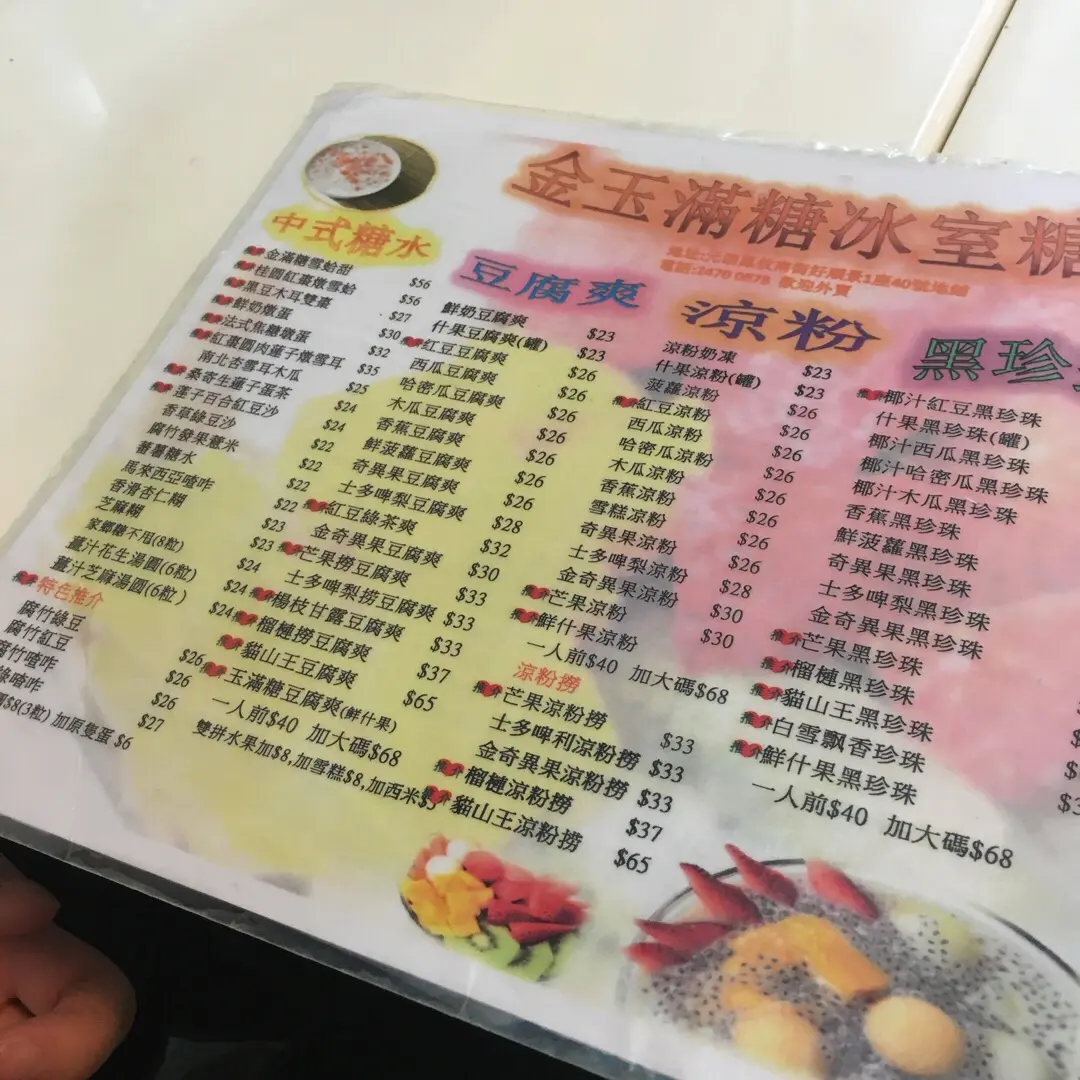 金玉滿糖冰室糖
電話:2470 0878 歡迎外賣
中式糖水
推介 金滿糖雪蛤甜 $56
推介 桂圓紅棗燉雪蛤 $56
推介 黑豆木耳雙棗 $27
推介 鮮奶燉蛋 $30
推介 法式焦糖燉蛋 $32
推介 紅棗圓肉蓮子燉雪耳 $35
南北杏雪耳木瓜 $25
推介 桑寄生蓮子蛋茶 $24
推介 蓮子百合紅豆沙 $24
香草綠豆沙 $22
腐竹發果薏米 $22
蕃薯糖水 $22
馬來西亞喳咋 $22
香滑杏仁糊 $23
芝麻糊 $23
家鄉糖不甩(8粒) $24
薑汁花生湯圓(6粒) $24
薑汁芝麻湯圓(6粒) $24
推介 特色推介
腐竹綠豆 $26
腐竹紅豆 $26
腐竹喳咋 $26
綠喳咋 $27
$8(3粒) 加原隻蛋 $6
豆腐爽
鮮奶豆腐爽 $23
什果豆腐爽(罐) $23
推介 紅豆豆腐爽 $26
西瓜豆腐爽 $26
哈密瓜豆腐爽 $26
木瓜豆腐爽 $26
香蕉豆腐爽 $26
鮮菠蘿豆腐爽 $26
奇異果豆腐爽 $28
士多啤梨豆腐爽 $32
推介 紅豆綠茶爽 $30
金奇異果豆腐爽 $33
推介 芒果撈豆腐爽 $33
士多啤梨撈豆腐爽 $33
推介 楊枝甘露豆腐爽
推介 榴槤撈豆腐爽 $37
推介 貓山王豆腐爽 $65
推介 玉滿糖豆腐爽(鮮什果)
一人前$40 加大碼$68
雙拼水果加$8,加雪糕$8,加西米
涼粉
涼粉奶凍 $23
什果涼粉(罐) $23
菠蘿涼粉 $26
推介 紅豆涼粉 $26
西瓜涼粉 $26
哈密瓜涼粉 $26
木瓜涼粉 $26
香蕉涼粉 $26
雪糕涼粉 $26
奇異果涼粉 $28
士多啤梨涼粉 $30
金奇異果涼粉 $30
推介 芒果涼粉
推介 鮮什果涼粉
一人前$40 加大碼$68
涼粉撈
推介 芒果涼粉撈 $33
士多啤利涼粉撈 $33
金奇異果涼粉撈 $33
推介 榴槤涼粉撈 $37
推介 貓山王涼粉撈 $65
黑珍
推介 椰汁紅豆黑珍珠
什果黑珍珠(罐)
椰汁西瓜黑珍珠
椰汁哈密瓜黑珍珠
椰汁木瓜黑珍珠
香蕉黑珍珠
鮮菠蘿黑珍珠
奇異果黑珍珠
士多啤梨黑珍珠
金奇異果黑珍珠
推介 芒果黑珍珠
推介 榴槤黑珍珠
推介 貓山王黑珍珠
推介 白雪飄香珍珠
推介 鮮什果黑珍珠
一人前$40 加大碼$68